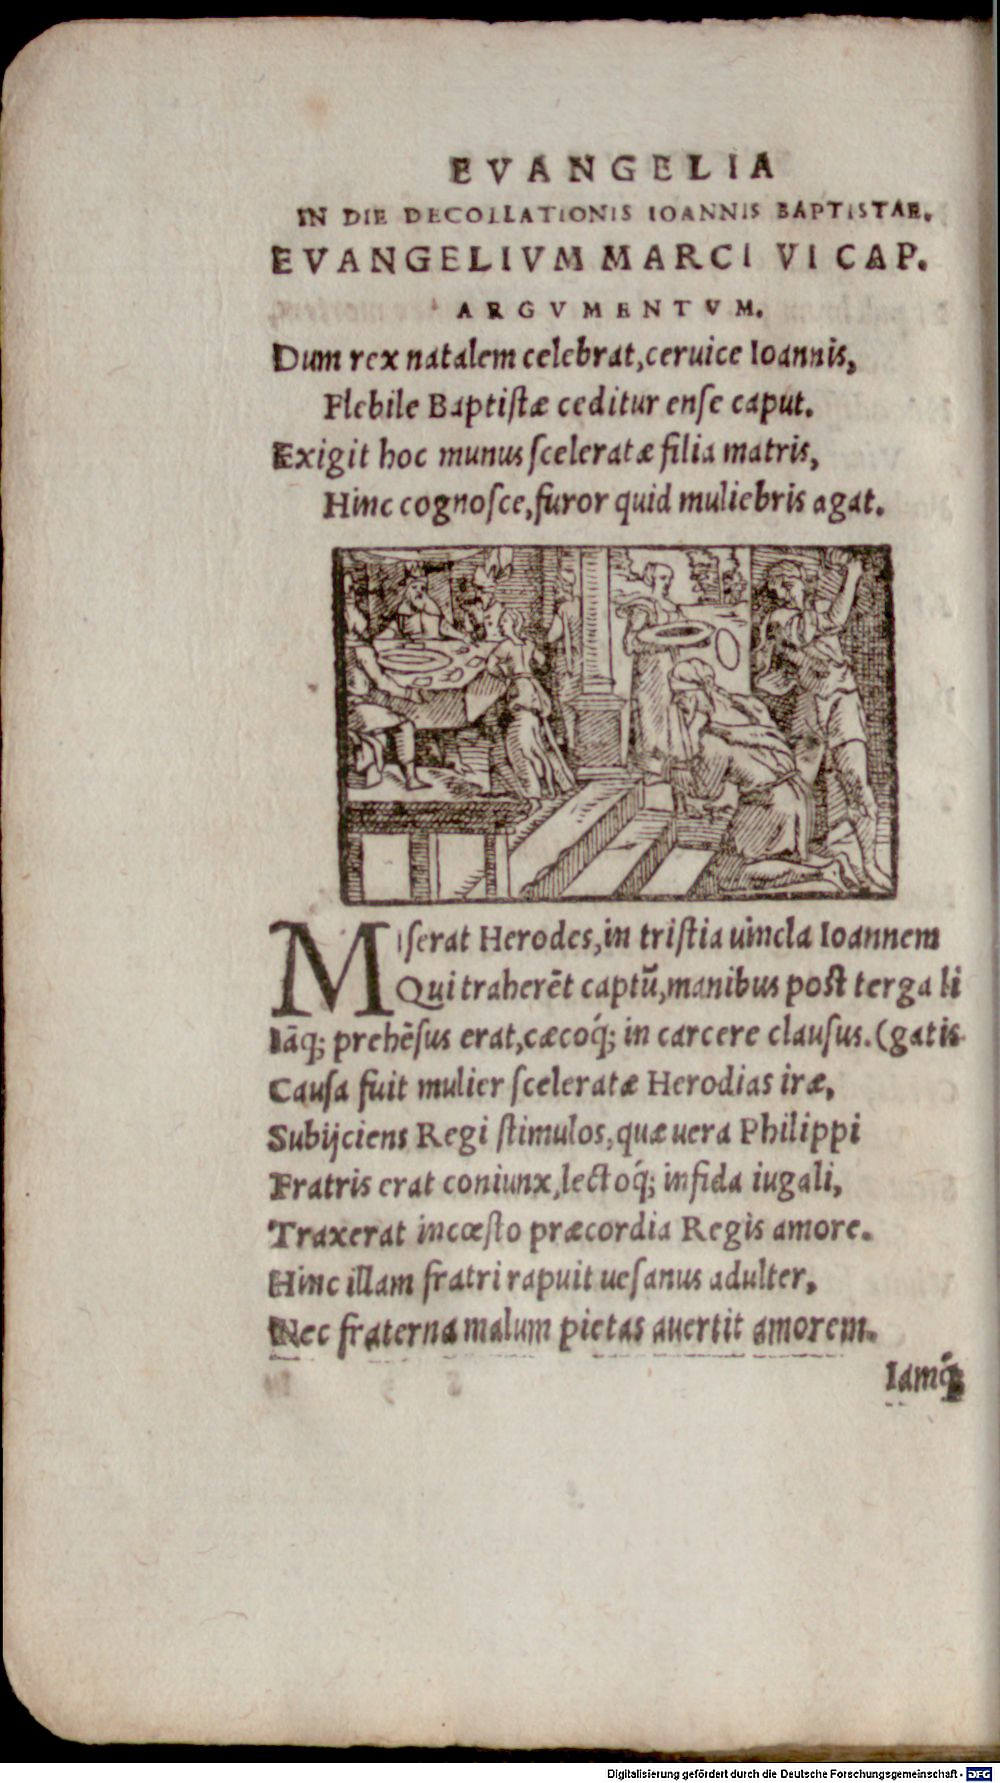 EVANGELIA
IN DIE DECOLLATIONIS IOANNIS BAPTISTAE.
EVANGELIVM MARCI VI CAP.
ARGVMENTVM.
Dum rex natalem celebrat, ceruice Ioannis,
Flebile Baptiſtæ ceditur enſe caput.
Exigit hoc munus ſceleratæ filia matris,
Hinc cognoſce, furor quid muliebris agat.
Miſerat Herodes, in triſtia uincla Ioannem
Qui traherēt captũ, manibus poſt terga li
Iāq́; prehēſus erat, cæcoq́; in carcere clauſus. (gatis
Cauſa fuit mulier ſceleratæ Herodias iræ,
Subijciens Regi ſtimulos, quæ uera Philippi
Fratris erat coniunx, lectoq́; infida iugali,
Traxerat incœſto præcordia Regis amore.
Hinc illam fratri rapuit ueſanus adulter,
Nec fraterna malum pietas auertit amorem.
Iamq́;
Digitalisierung gefördert durch die Deutsche Forschungsgemeinschaft - DFG